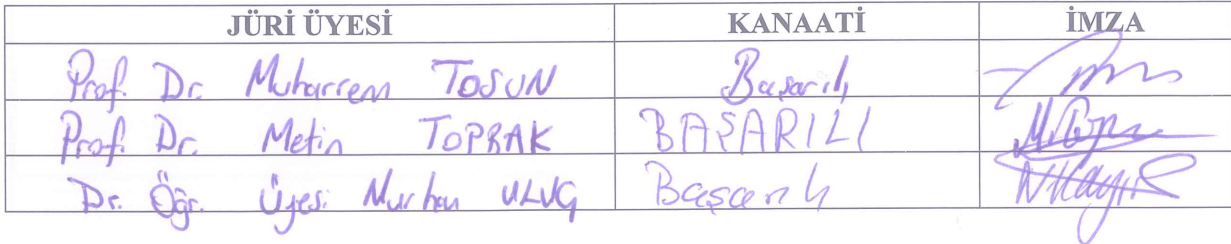 JÜRİ ÜYESİ KANAATİ İMZA
Prof. Dr. Muharrem TOSUN Başarılı
Prof. Dr. Metin TOPRAK BAŞARILI
Dr. Öğr. Üyesi ULUÇ Başarılı